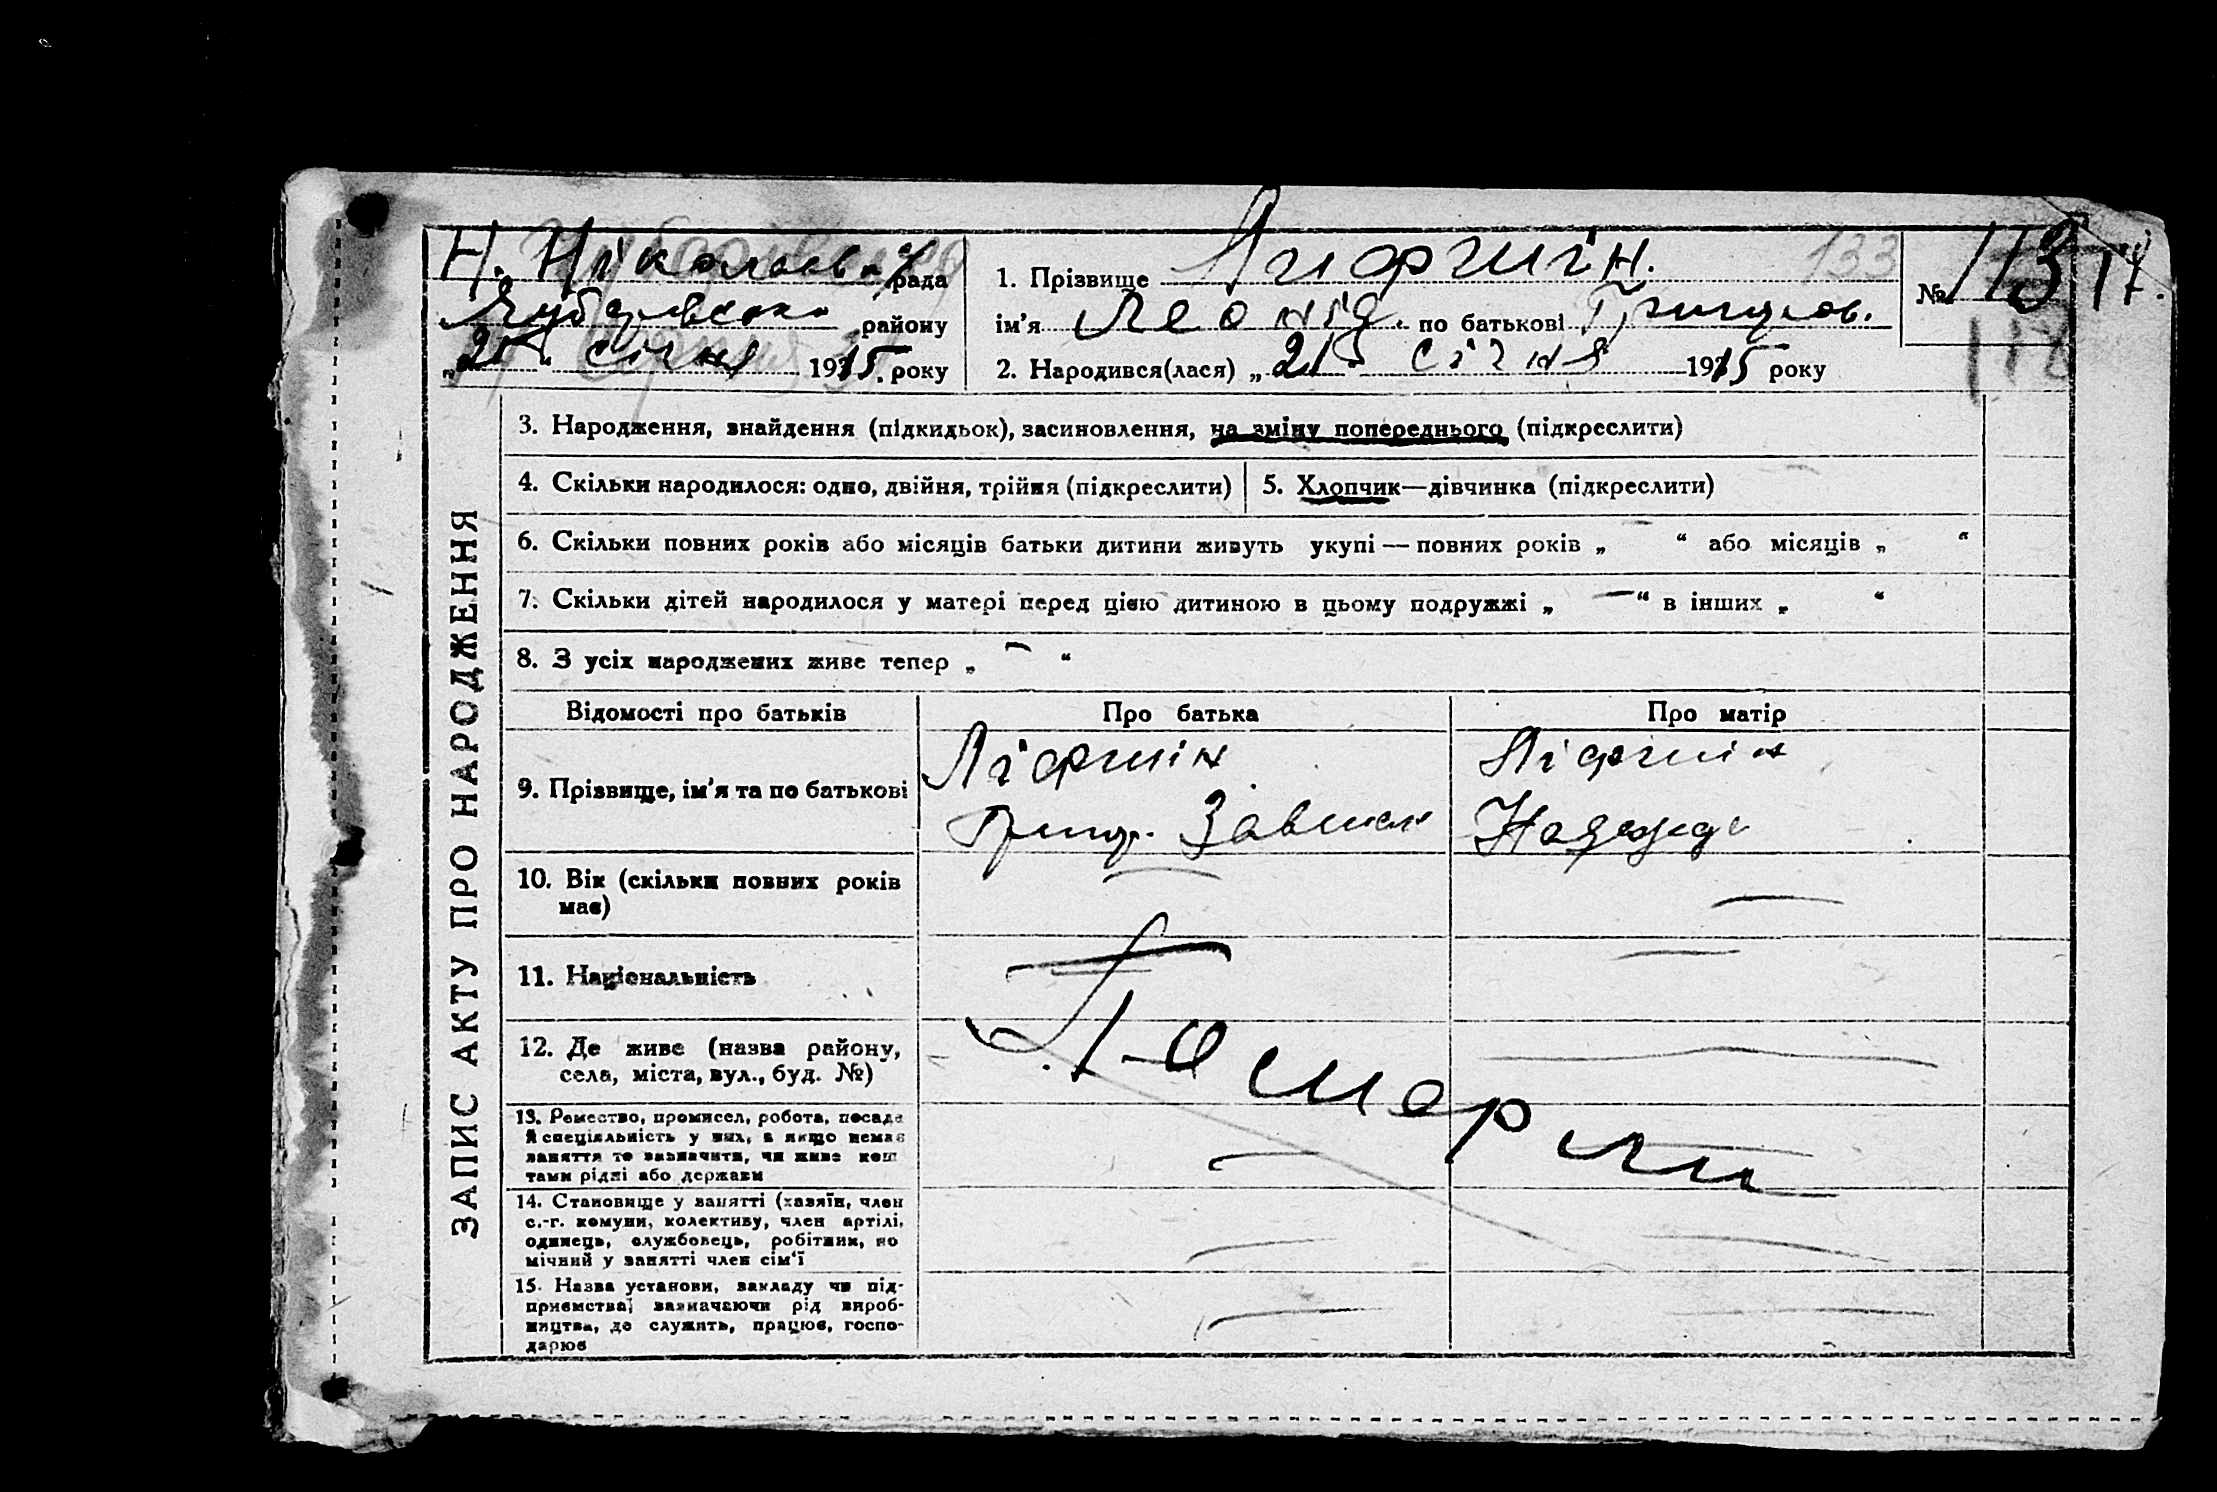 Н. Ніколаєвка рада
Чубарівсько району
„21“ січня 1915. року
1. Прізвище Лифшин.
133
ім'я Леонід по батькові Григоров.
2. Народився(лася) „21“ січня 1915 року
№ 113
118
3. Народження, знайдення (підкидьок), засиновлення, на зміну попереднього (підкреслити)
4. Скільки народилося: одно, двійня, трійня (підкреслити)
5. Хлопчик—дівчинка (підкреслити)
6. Скільки повних років або місяців батьки дитини живуть укупі — повних років „ — “ або місяців „ “
7. Скільки дітей народилося у матері перед цією дитиною в цьому подружжі „ — “ в інших „ “
8. З усіх народжених живе тепер „ — “
ЗАПИС АКТУ ПРО НАРОДЖЕННЯ
Відомості про батьків
Про батька
Про матір
9. Прізвище, ім'я та по батькові
Ліфшін
Григ.
Ліфшін
Надежда
10. Вік (скільки повних років
має)
11. Національність
12. Де живе (назва району,
села, міста, вул., буд. №)
Поморли
13. Ремество, промисел, робота, посада
й спеціяльність у них, а якщо немає
заняття то зазначити, чи живе кош
тами рідні або держави
14. Становище у занятті (хазяїн, член
с.-г. комуни, колективу, член артілі,
одинець, службовець, робітник, по
мічний у занятті член сім'ї
15. Назва установи, закладу чи під-
приємства, зазначаючи рід вироб-
ництва, де служить, працює, госпо-
дарює